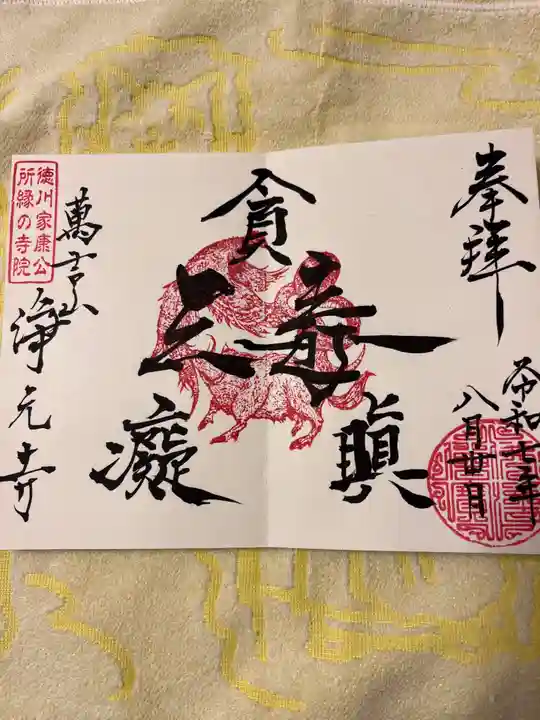 奉拜
令和七年
八月廿日
貪
三毒
瞋
癡
徳川家康公
所縁の寺院
淨元寺